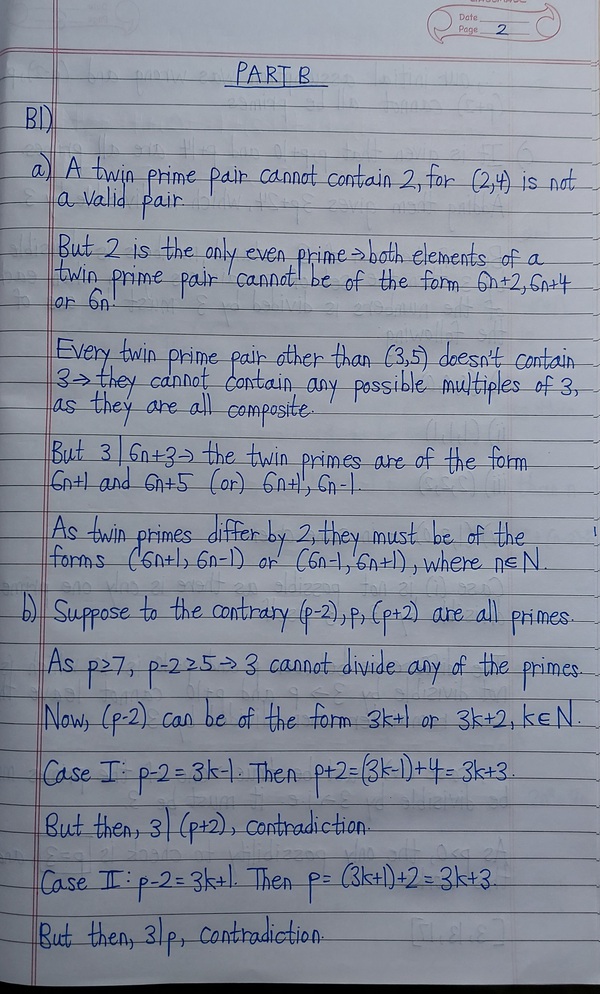 Date
Page 2
PART B
B1)
a) A twin prime pair cannot contain 2, for (2,4) is not
a valid pair
But 2 is the only even prime → both elements of a
twin prime pair cannot be of the form 6n+2, 6n+4
or 6n.
Every twin prime pair other than (3,5) doesn't contain
3 → they cannot contain any possible multiples of 3,
as they are all composite.
But 3 | 6n+3 → the twin primes are of the form
6n+1 and 6n+5 (or) 6n+1, 6n-1.
As twin primes differ by 2, they must be of the
forms (6n+1, 6n-1) or (6n-1, 6n+1), where n∈N.
b) Suppose to the contrary (p-2), p, (p+2) are all primes.
As p≥7, p-2≥5 → 3 cannot divide any of the primes.
Now, (p-2) can be of the form 3k+1 or 3k+2, k∈N.
Case I: p-2 = 3k-1. Then p+2=(3k-1)+4= 3k+3.
But then, 3| (p+2), contradiction.
Case II: p-2 = 3k+1. Then p= (3k+1)+2 = 3k+3.
But then, 3|p, contradiction.